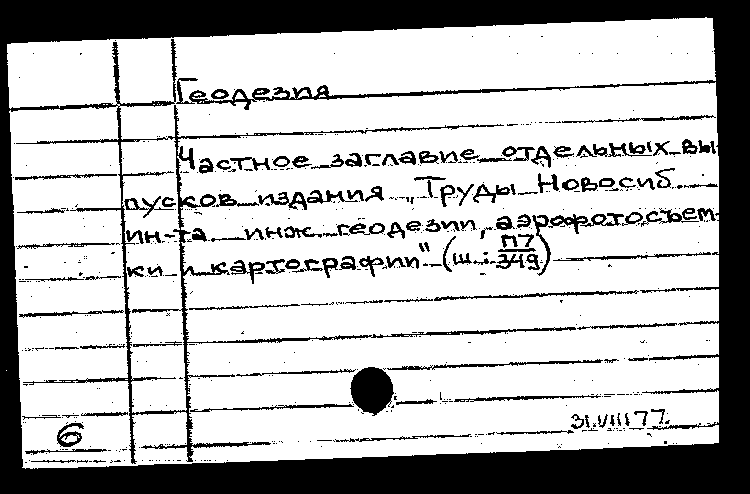 Геодезия
Частное заглавие отдельных вы
пусков издания „Труды Новосиб.
ин-та инж. геодезии, аэрофотосъем-
ки и картографии" (ш.: П7/349)
6
31.VIII 77.